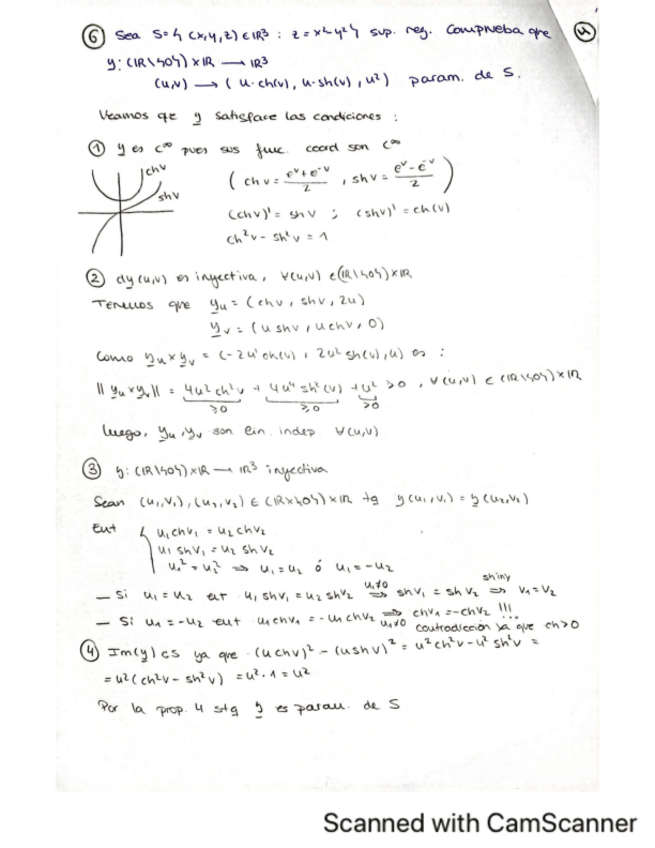 ⑥ Sea S = { (x,y,z) ∈ ℝ³ : z = x²-y² } sup. reg. Comprueba que
④
y: (ℝ\{0}) x ℝ → ℝ³
(u,v) → ( u·ch(v), u·sh(v), u²) param. de S.
Veamos que y satisface las condiciones :
① y es C^∞ pues sus func. coord son C^∞
chv
shv
( chv = (e^v + e^-v)/2 , shv = (e^v - e^-v)/2 )
(chv)' = shv ; (shv)' = ch(v)
ch²v - sh²v = 1
② dy(u,v) es inyectiva, ∀(u,v) ∈ (ℝ\{0}) x ℝ
Tenemos que y_u = (chv, shv, 2u)
y_v = (u shv, u chv, 0)
Como y_u x y_v = (-2u² ch(v), 2u² sh(v), u) es :
|| y_u x y_v || = 4u² ch²v + 4u⁴ sh²(v) + u² > 0 , ∀(u,v) ∈ (ℝ\{0}) x ℝ
≥0 ≥0 >0
luego, y_u, y_v son lin. indep. ∀(u,v)
③ y: (ℝ\{0}) x ℝ → ℝ³ inyectiva
Sean (u₁,v₁), (u₂,v₂) ∈ (ℝ x {0}) x ℝ tq y(u₁,v₁) = y(u₂,v₂)
Ent { u₁chv₁ = u₂chv₂
u₁ shv₁ = u₂ shv₂
u₁² = u₂² ⇒ u₁ = u₂ ó u₁ = -u₂
— Si u₁ = u₂ ent u₁ shv₁ = u₂ shv₂ ⇒ (u₁≠0) shv₁ = shv₂ ⇒ (sh iny) v₁ = v₂
— Si u₁ = -u₂ ent u₁chv₁ = -u₁chv₂ ⇒ (u₁≠0) chv₁ = -chv₂ !!!
contradicción ya que ch>0
④ Im(y) ⊂ S ya que (u chv)² - (u shv)² = u² ch²v - u² sh²v =
= u² (ch²v - sh²v) = u² · 1 = u²
Por la prop. 4 y es param. de S
Scanned with CamScanner